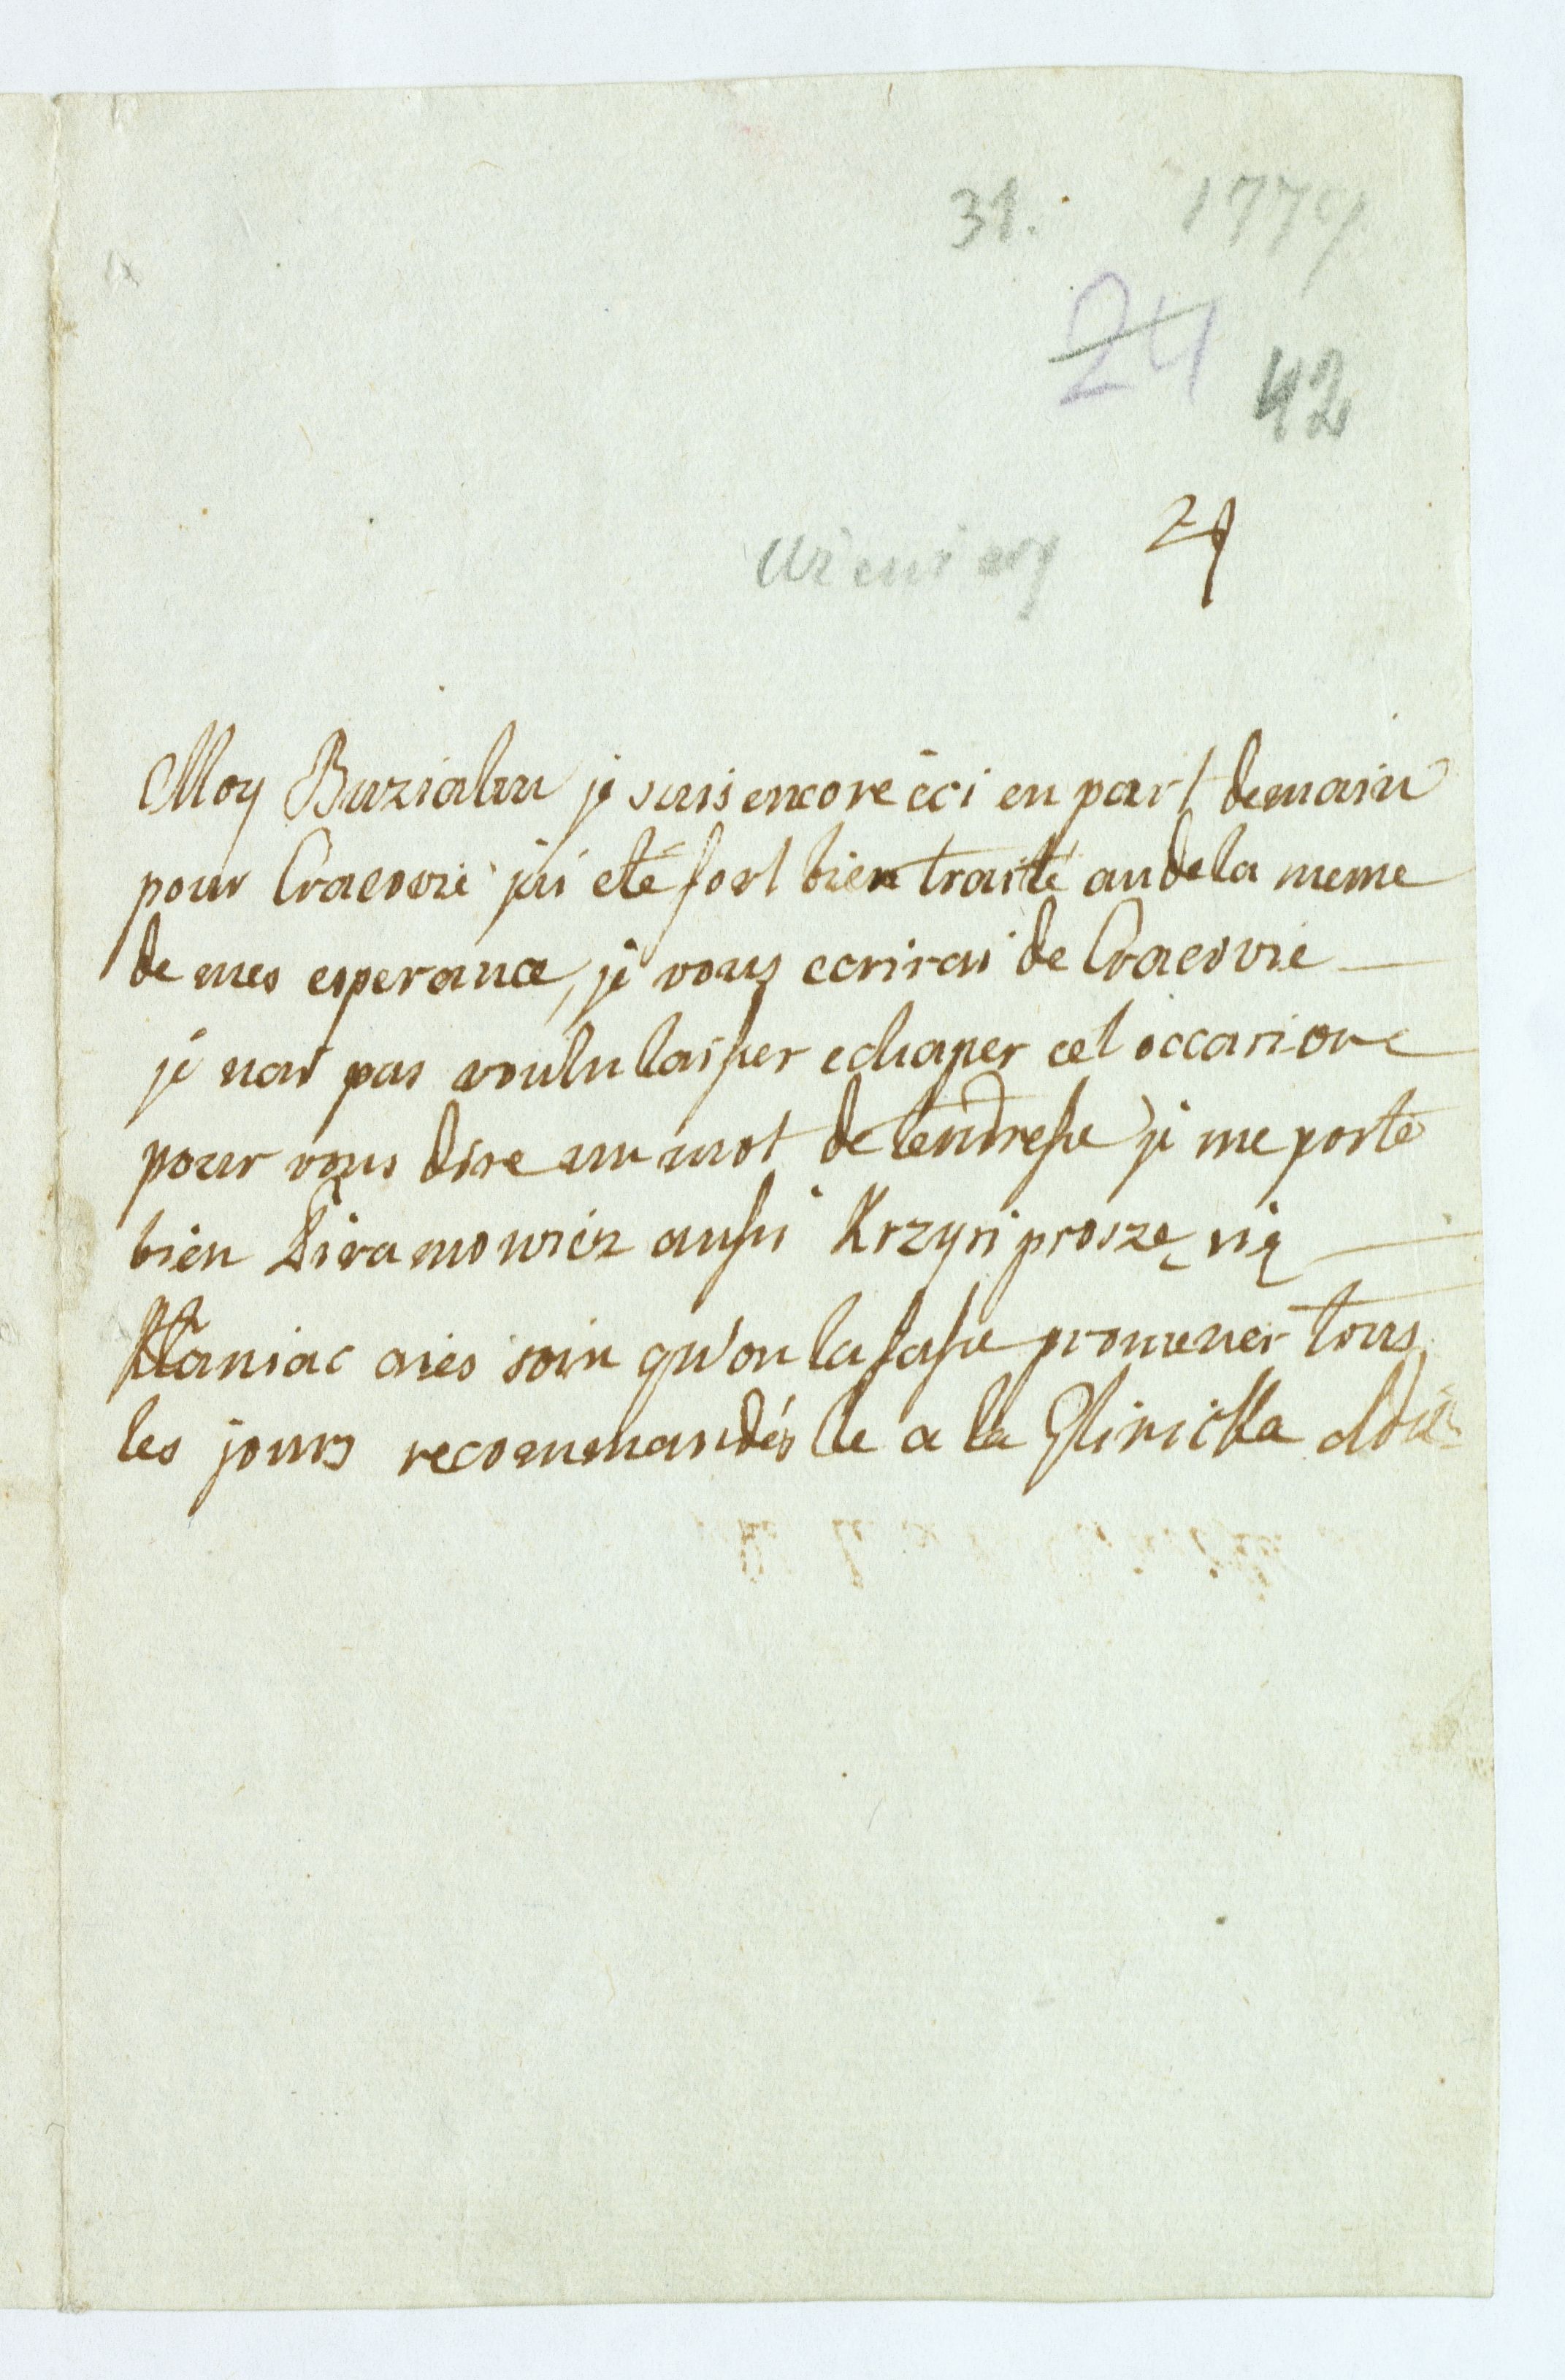 31. 1779
24
42
24
Moy Buziaku je suis encore ici en part demain
pour Cracovie j'ai eté fort bien traité audela meme
de mes esperance, je vous ecrirai de Cracovie
je nai pas voulu laisser echaper cet occasione
pour vous dire un mot de tendresse je me porte
bien Piramowicz aussi Krzysi proszę się
kłaniac aies soin qu'on la fasse promener tous
les jours recommandés le a la Glinicka Adie